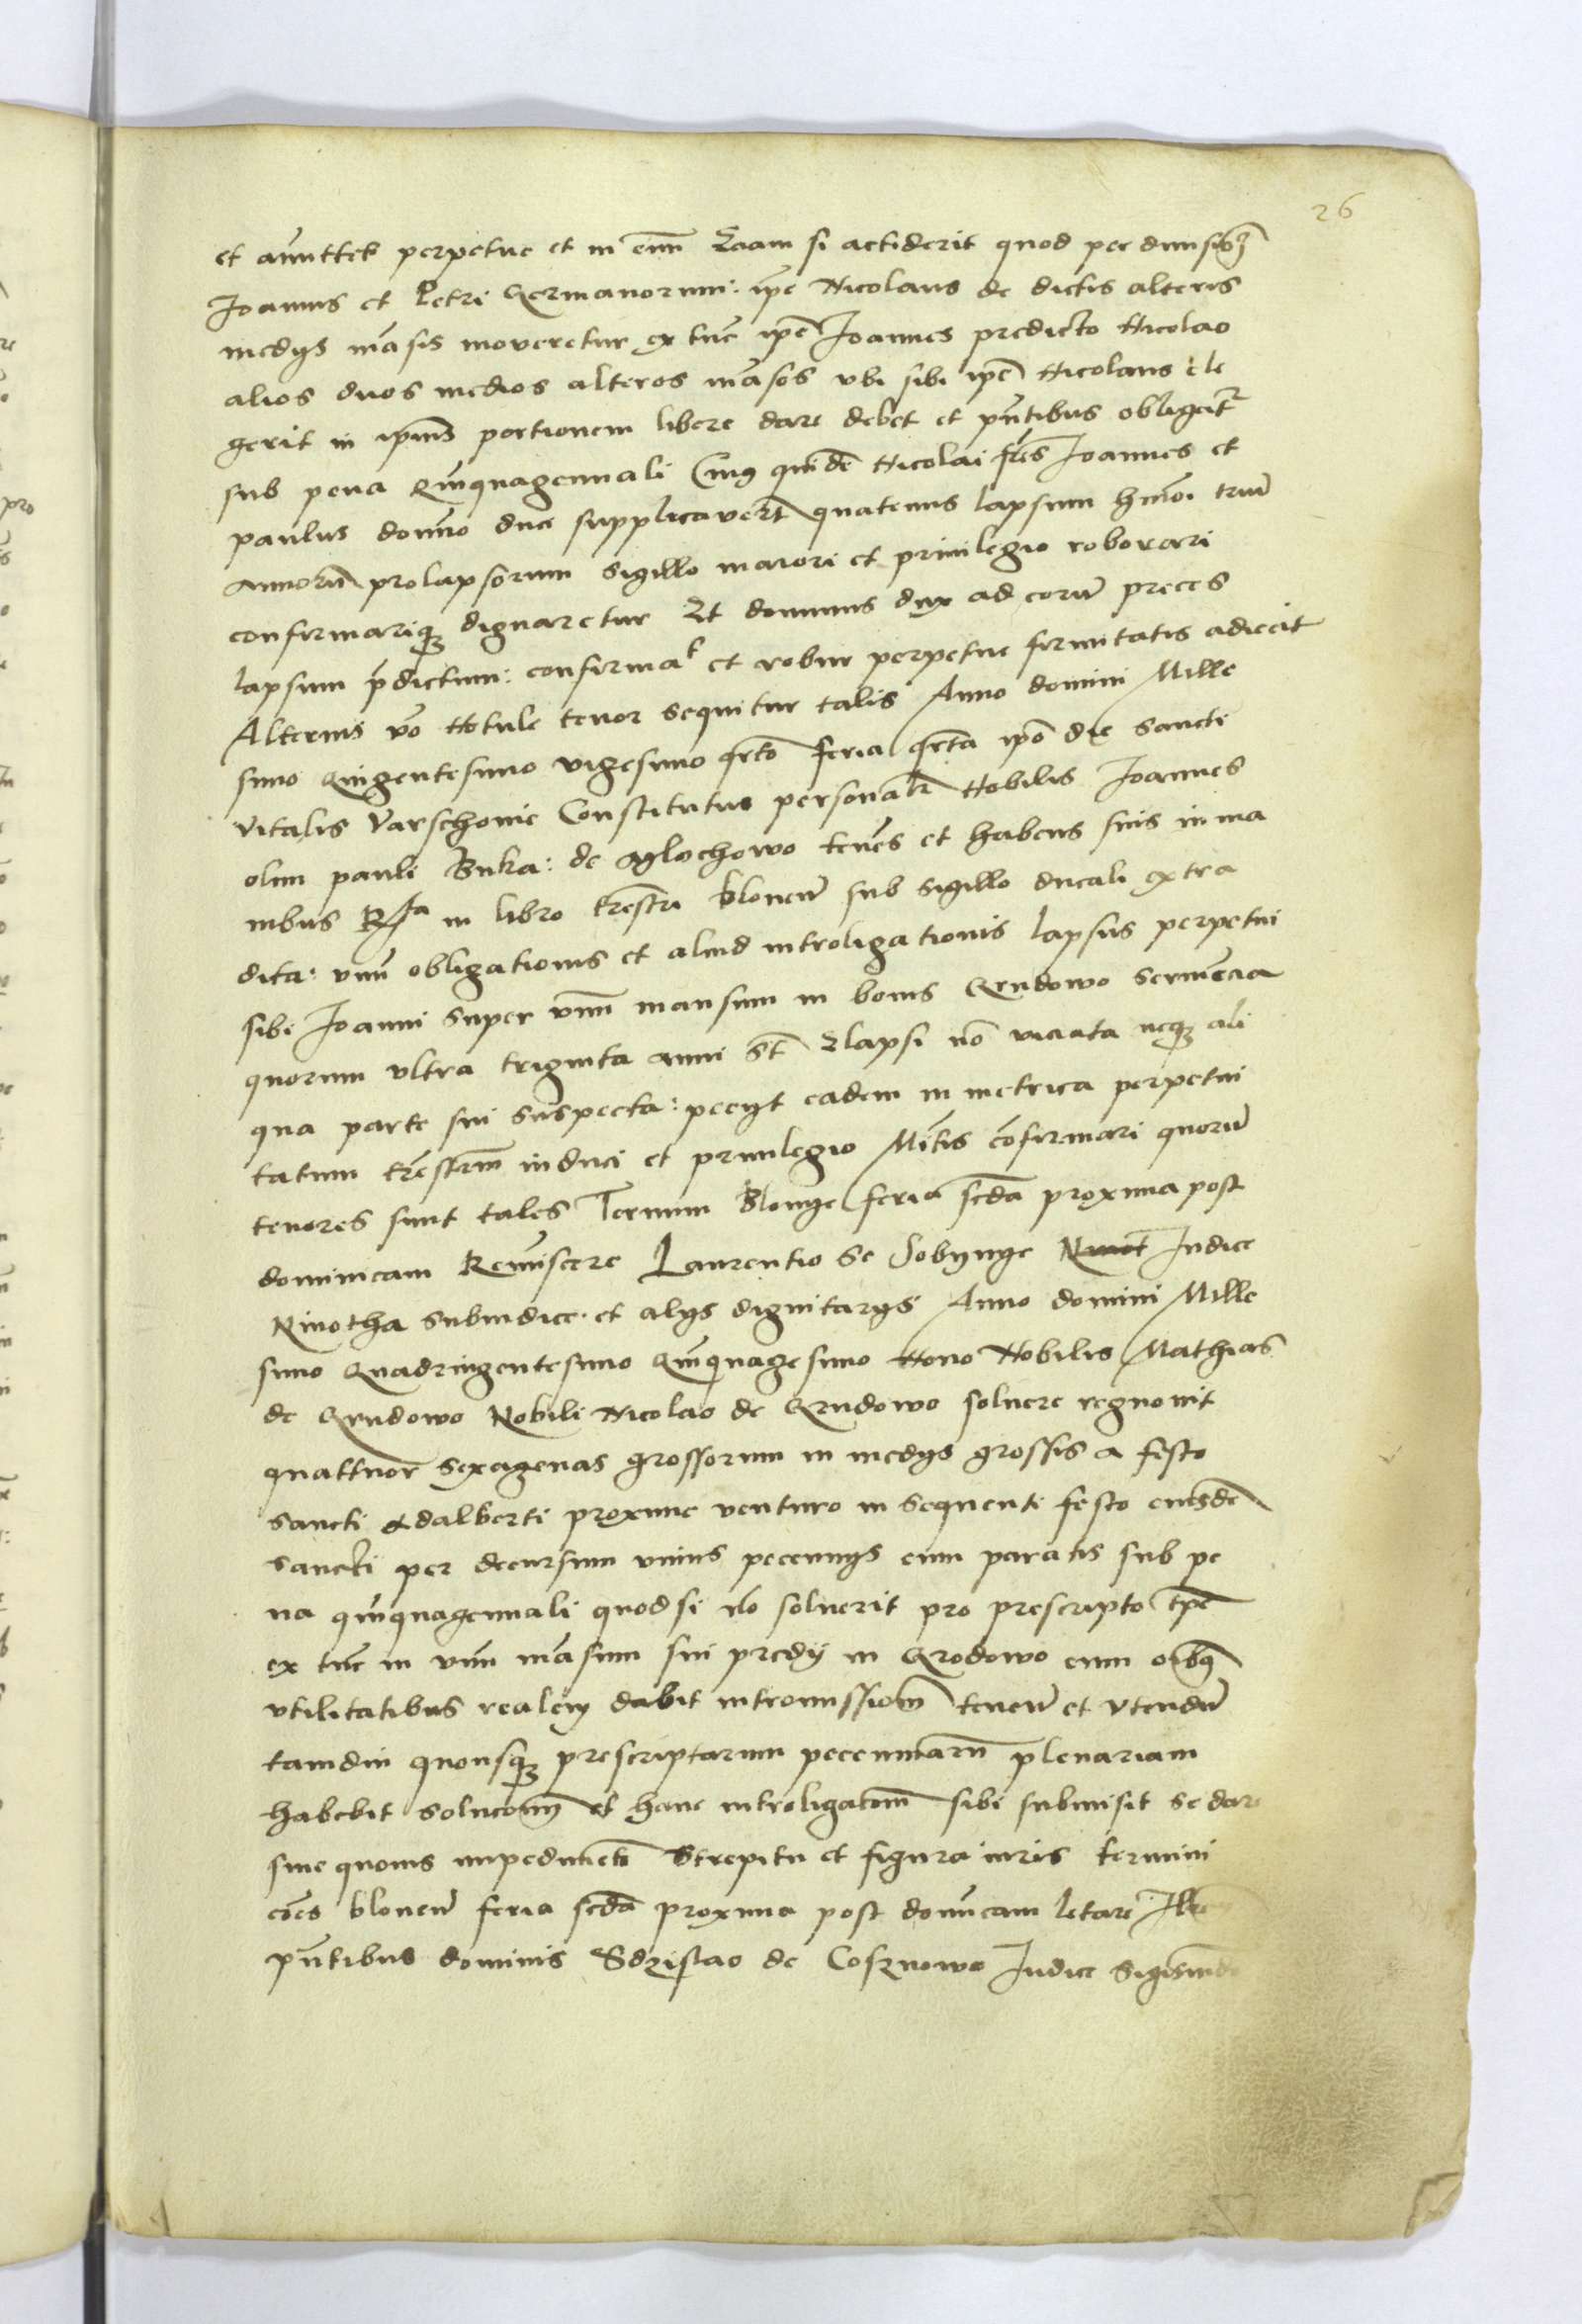 26
et amittet perpetue et in eum Eciam si acciderit quod per divisionē
Joannis et Petri Germanorum: ipē Nicolaus de dictis alteris
medys māsis moveretur ex tūc ipē Joannes predicto Nicolao
alios duos medios alteros māsos vbi sibi ipē Nicolaus ele
gerit in ipīus portionem libere dare debet et pn̄tibus obligatr
sub pena Quīquagennali Cuius quidē Nicolai fr̄es Joannes et
paulus domino duci supplicaver̄t quatenus lapsum hmōi triū
annorū prolapsorum sigillo maiori et privilegio roborari
confirmariq3 dignaretur Et dominus dux ad eorū preces
lapsum p̄dictum: confirmat et robur perpetue firmitatis adiecit
Alterius vo Notule tenor sequitur talis Anno domini Mille
simo Quingentesimo vigesimo qrto feria qrta ipō die sancti
Vitalis Varschovie Constitutus personalr Nobilis Joannes
olim pauli Buka: de Mlochowo tenēs et habens suis in ma
nibus Rta in libro trēstri blonen̄ sub sigillo ducali extra
dita: vnū obligationis et aliud introligationis lapsus perpetui
sibi Joanni super vnū mansum in bonis Grudowo
quorum vltra triginta anni sūt Elapsi nō viciata neq3 ali
qua parte sui suspecta: pecyt eadem in metrica perpetui
tatum trēstrem induci et privilegio Mētis cōfirmari quorū
tenores sunt tales Termini Blonye feria scda proxima post
dominicam Reminiscere Laurentio de Sobynye Judice
Ninotha subiudice et alys dignitarys Anno domini Mille
simo Quadringentesimo Quīquagesimo Nono Nobilis Mathias
de Grudowo Nobili Nicolao de Grudowo soluere regnovit
quattuor sexagenas grossorum in medys grossis a festo
sancti Adalberti proxime venturo in sequenti festo eiusdē
sancti per decursum vnius pecunnys cum paratis sub pe
na quīquagennali quod si nō solverit pro prescripto tpē
ex tūc in vnū māsum sui predy in Grodowo cum oībus
vtilitatibus realem dabit intromissionē tenen̄ et vtendū
tamdiu quousq3 prescriptarum pecuniarū plenariam
habebit solucionē et hanc introligacionē sibi submisit se dare
sine quovis impedimētō Strepitu et figura iuris termini
cōes blonen̄ feria scda proxima post domīcam letare
pn̄tibus dominis Sdzislao de Cosznowo Judice